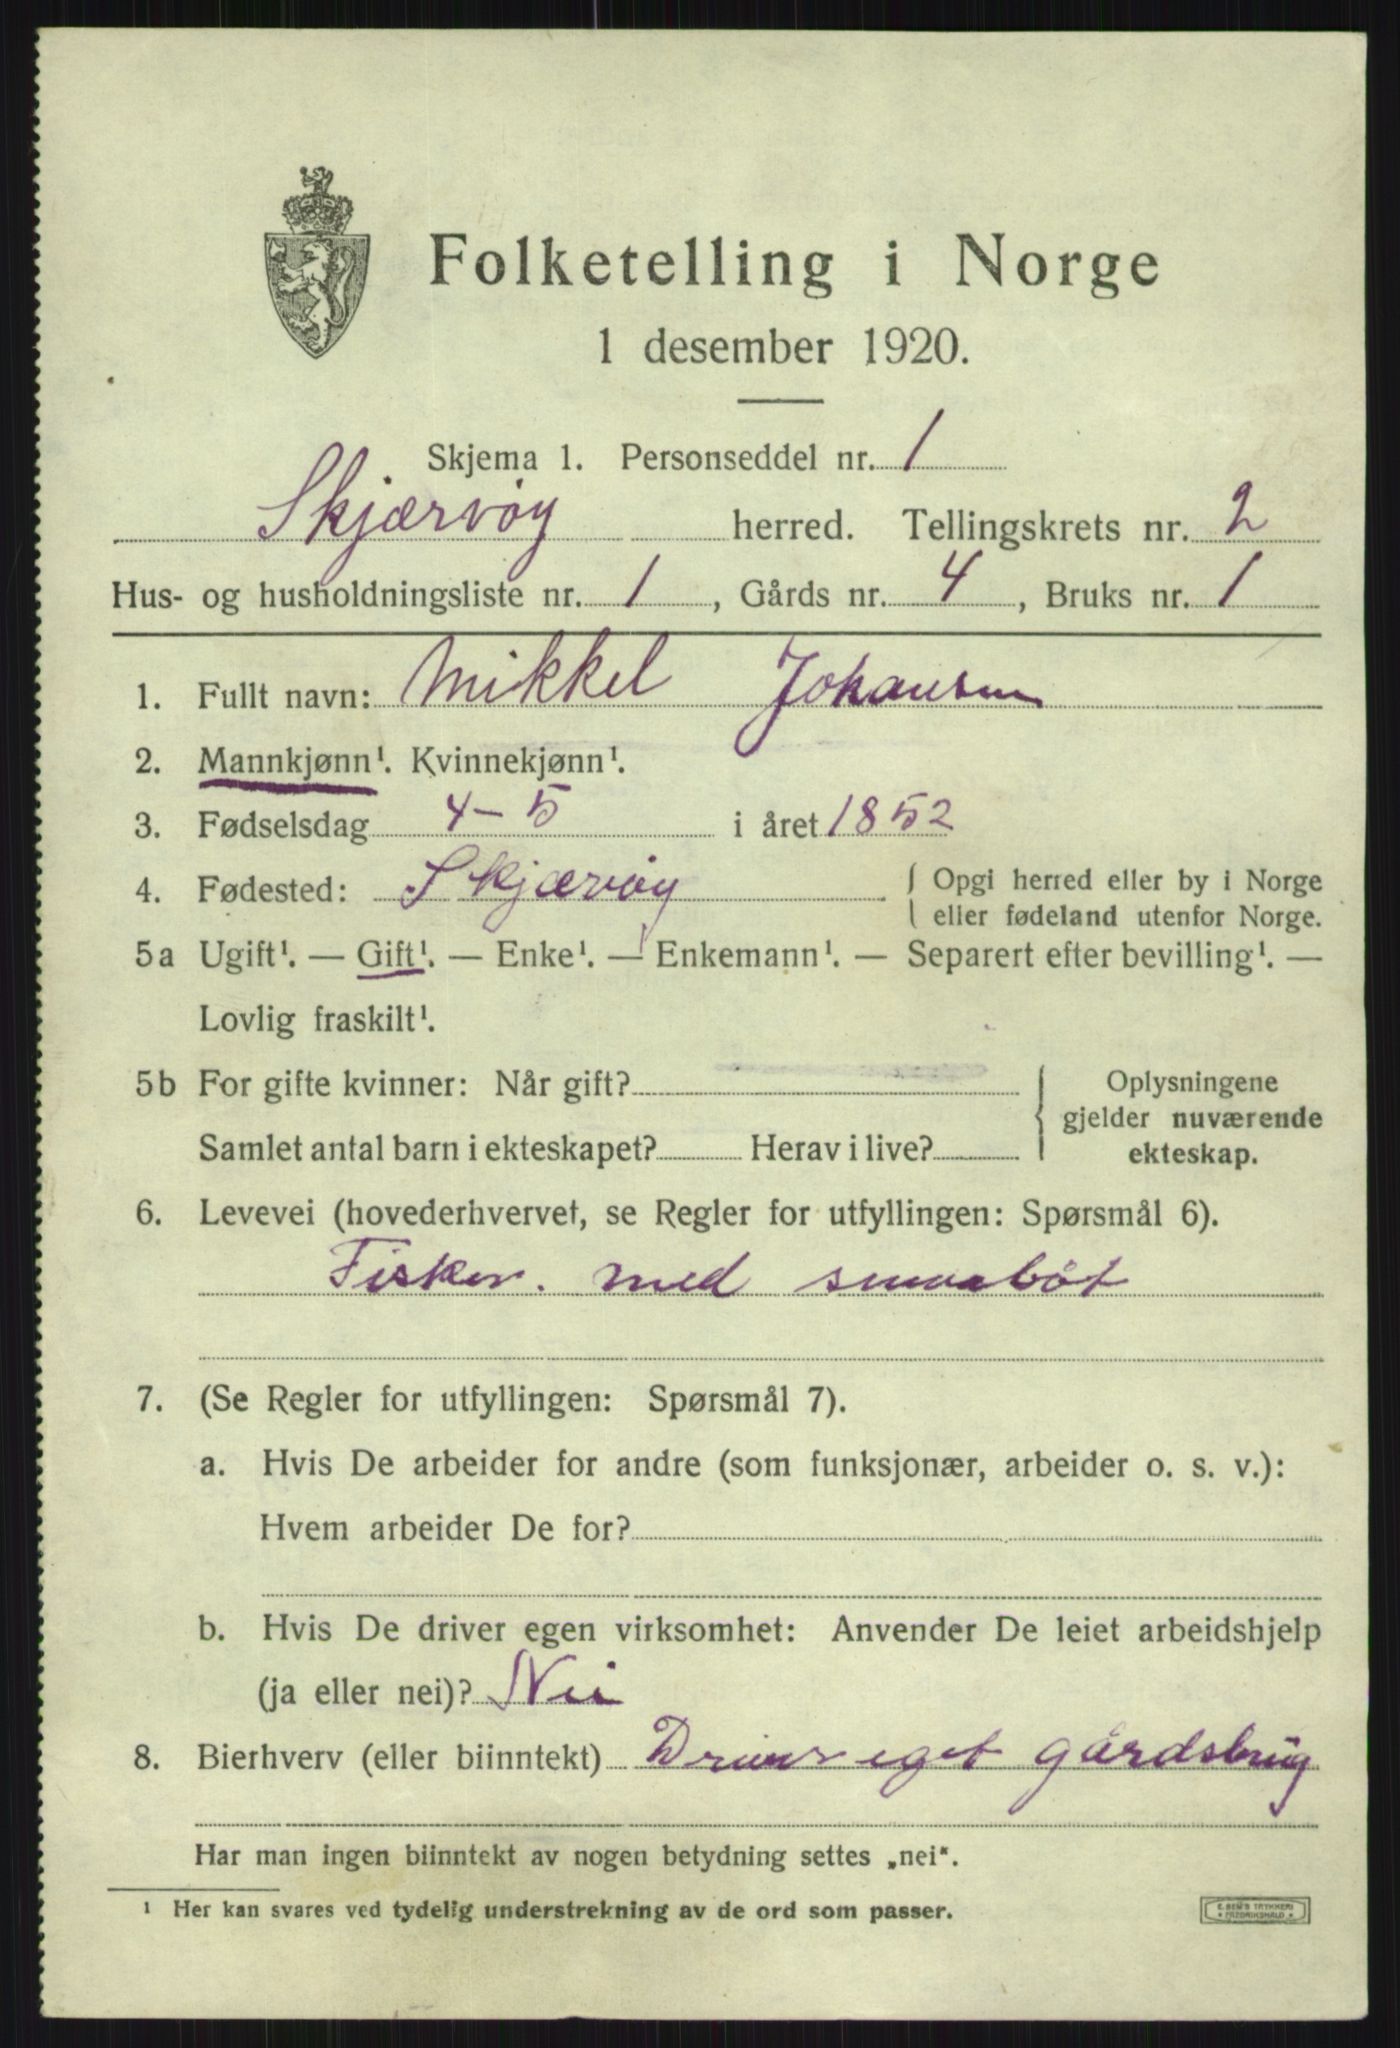 Folketelling i Norge
1 desember 1920.
Skjema 1. Personseddel nr. 1
Skjærvöy herred. Tellingskrets nr. 2
Hus- og husholdningsliste nr. 1, Gårds nr. 4, Bruks nr. 1
1. Fullt navn: Mikkel Johansen
2. Mannkjønn¹. Kvinnekjønn¹.
3. Fødselsdag 4-5 i året 1852
4. Fødested: Skjærvöy { Opgi herred eller by i Norge
eller fødeland utenfor Norge.
5a Ugift¹. — Gift¹. — Enke¹. — Enkemann¹. — Separert efter bevilling¹. —
Lovlig fraskilt¹.
5b For gifte kvinner: Når gift?
Samlet antal barn i ekteskapet? Herav i live?
Oplysningene
gjelder nuværende
ekteskap.
6. Levevei (hovederhvervet, se Regler for utfyllingen: Spørsmål 6).
Fisker. med
7. (Se Regler for utfyllingen: Spørsmål 7).
a. Hvis De arbeider for andre (som funksjonær, arbeider o. s. v.):
Hvem arbeider De for?
b. Hvis De driver egen virksomhet: Anvender De leiet arbeidshjelp
(ja eller nei)? Nei
8. Bierhverv (eller biinntekt) Driver eget gårdsbrug
Har man ingen biinntekt av nogen betydning settes „nei".
¹ Her kan svares ved tydelig understrekning av de ord som passer.
E. SEM'S TRYKKERI
* FREDRIKSHALD *